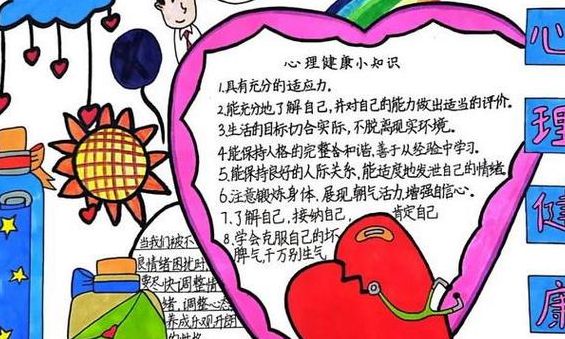 心理健康小知识
1.具有充分的适应力。
2.能充分地了解自己,并对自己的能力做出适当的评价。
3.生活的目标切合实际,不脱离现实环境。
4.能保持人格的完整舍和谐,善于从经验中学习。
5.能保持良好的人际关系,能适度地发泄自己的情绪
6.注意锻炼身体,展现朝气活力,增强自信心。
7.了解自己,接纳自己,肯定自己
8.学会克服自己的坏
脾气,千万别生气
当我们被不
良情绪困扰时,
要尽快调整情
绪,调整心态
养成乐观开朗
的性格
心
理
健
康